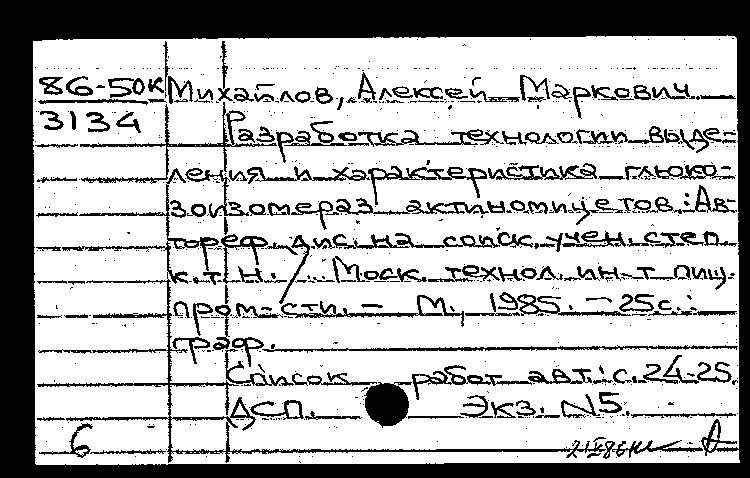 86-50к Михайлов, Алексей Маркович
3134 Разработка технологии выде-
ления и характеристика глюко-
зоизомераз актиномицетов: Ав-
тореф. дис. на соиск. учен. степ.
к.т.н. Моск. технол. ин-т пищ.
пром-сти. – М., 1985. – 25с.:
граф.
Список работ авт.: с. 24-25.
ДСП. Экз. N5.
6